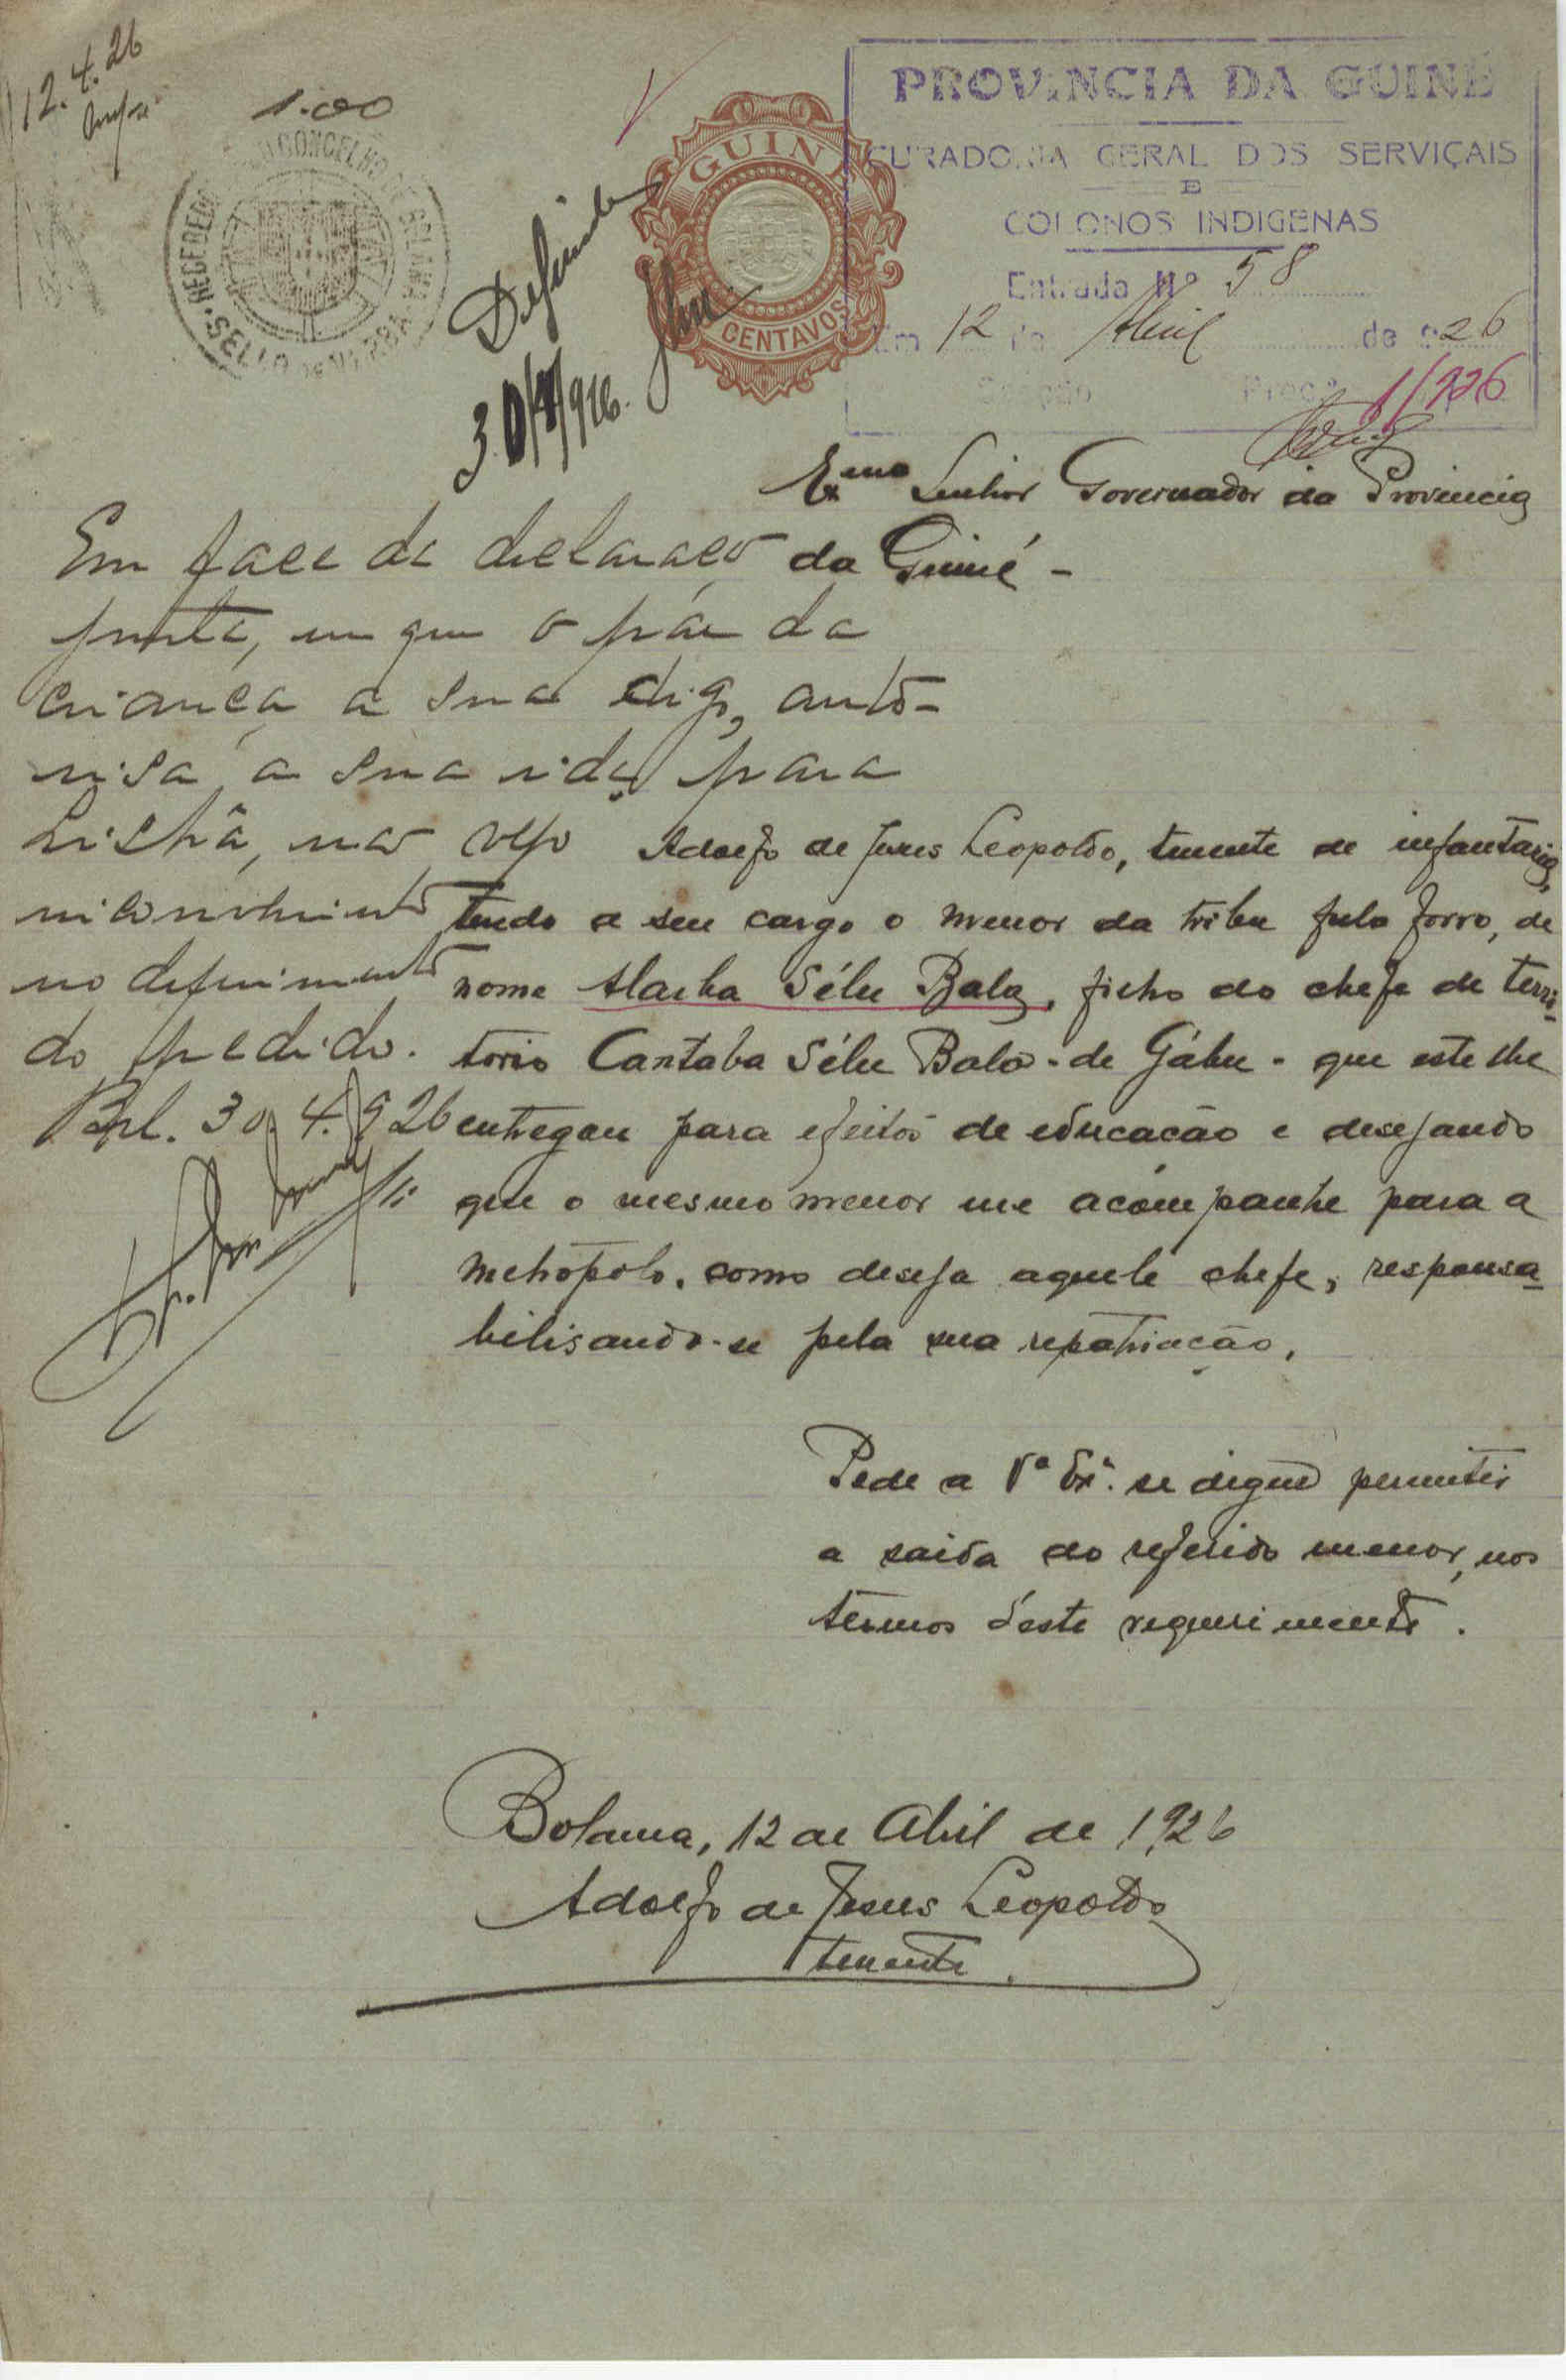 12.4.26
1.00
RECEBEDORIA CONCELHO DE BOLAMA
SELLO DE VERBA
GUINÉ
CENTAVOS
Deferido
30/4/926.
PROVINCIA DA GUINÉ
CURADORIA GERAL DOS SERVIÇAIS
E
COLONOS INDIGENAS
Entrada Nº 58
Em 12 de Abril de 926
Secção Proc.º 1/926
Ex.mo Senhor Governador da Provincia
da Guiné -
Em face da declaração
junta, em que o pae da
criança a sua digo, auto-
risa a sua ida para
Lisbôa, não vejo
inconveniente
no deferimento
do pedido.
Bol. 30.4.926
Adolfo de Jesus Leopoldo, tenente de infantaria,
tendo a seu cargo o menor da tribu fula forro, de
nome Alarba Sélu Baló, filho do chefe de terri-
torio Cantaba Sélu Baló - de Gábu - que este lhe
entregou para efeitos de educação e desejando
que o mesmo menor me acompanhe para a
metropole, como deseja aquele chefe, responsa-
bilisando-se pela sua repatriação,
Pede a V.ª Ex.ª se digne permitir
a saida do referido menor, nos
termos d'este requerimento.
Bolama, 12 de Abril de 1926
Adolfo de Jesus Leopoldo
tenente